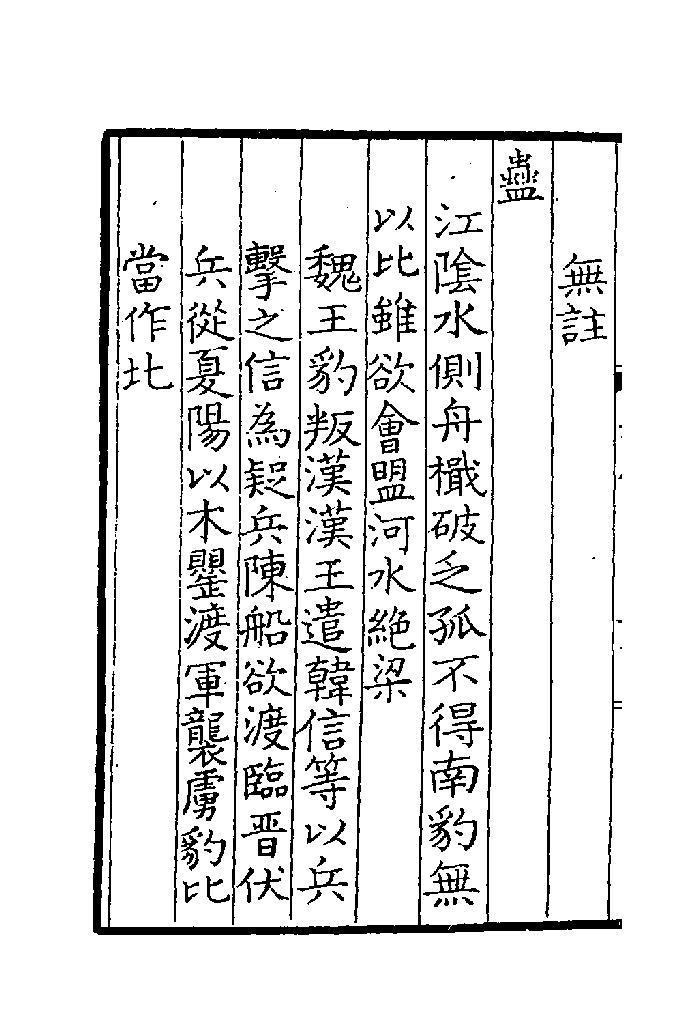 無註
蠱
江陰水側舟檝破乏孤不得南豹無
以比雖欲會盟河水絶梁
魏王豹叛漢漢王遣韓信等以兵
擊之信為疑兵陳船欲渡臨晋伏
兵從夏陽以木罌渡軍襲虜豹比
當作北